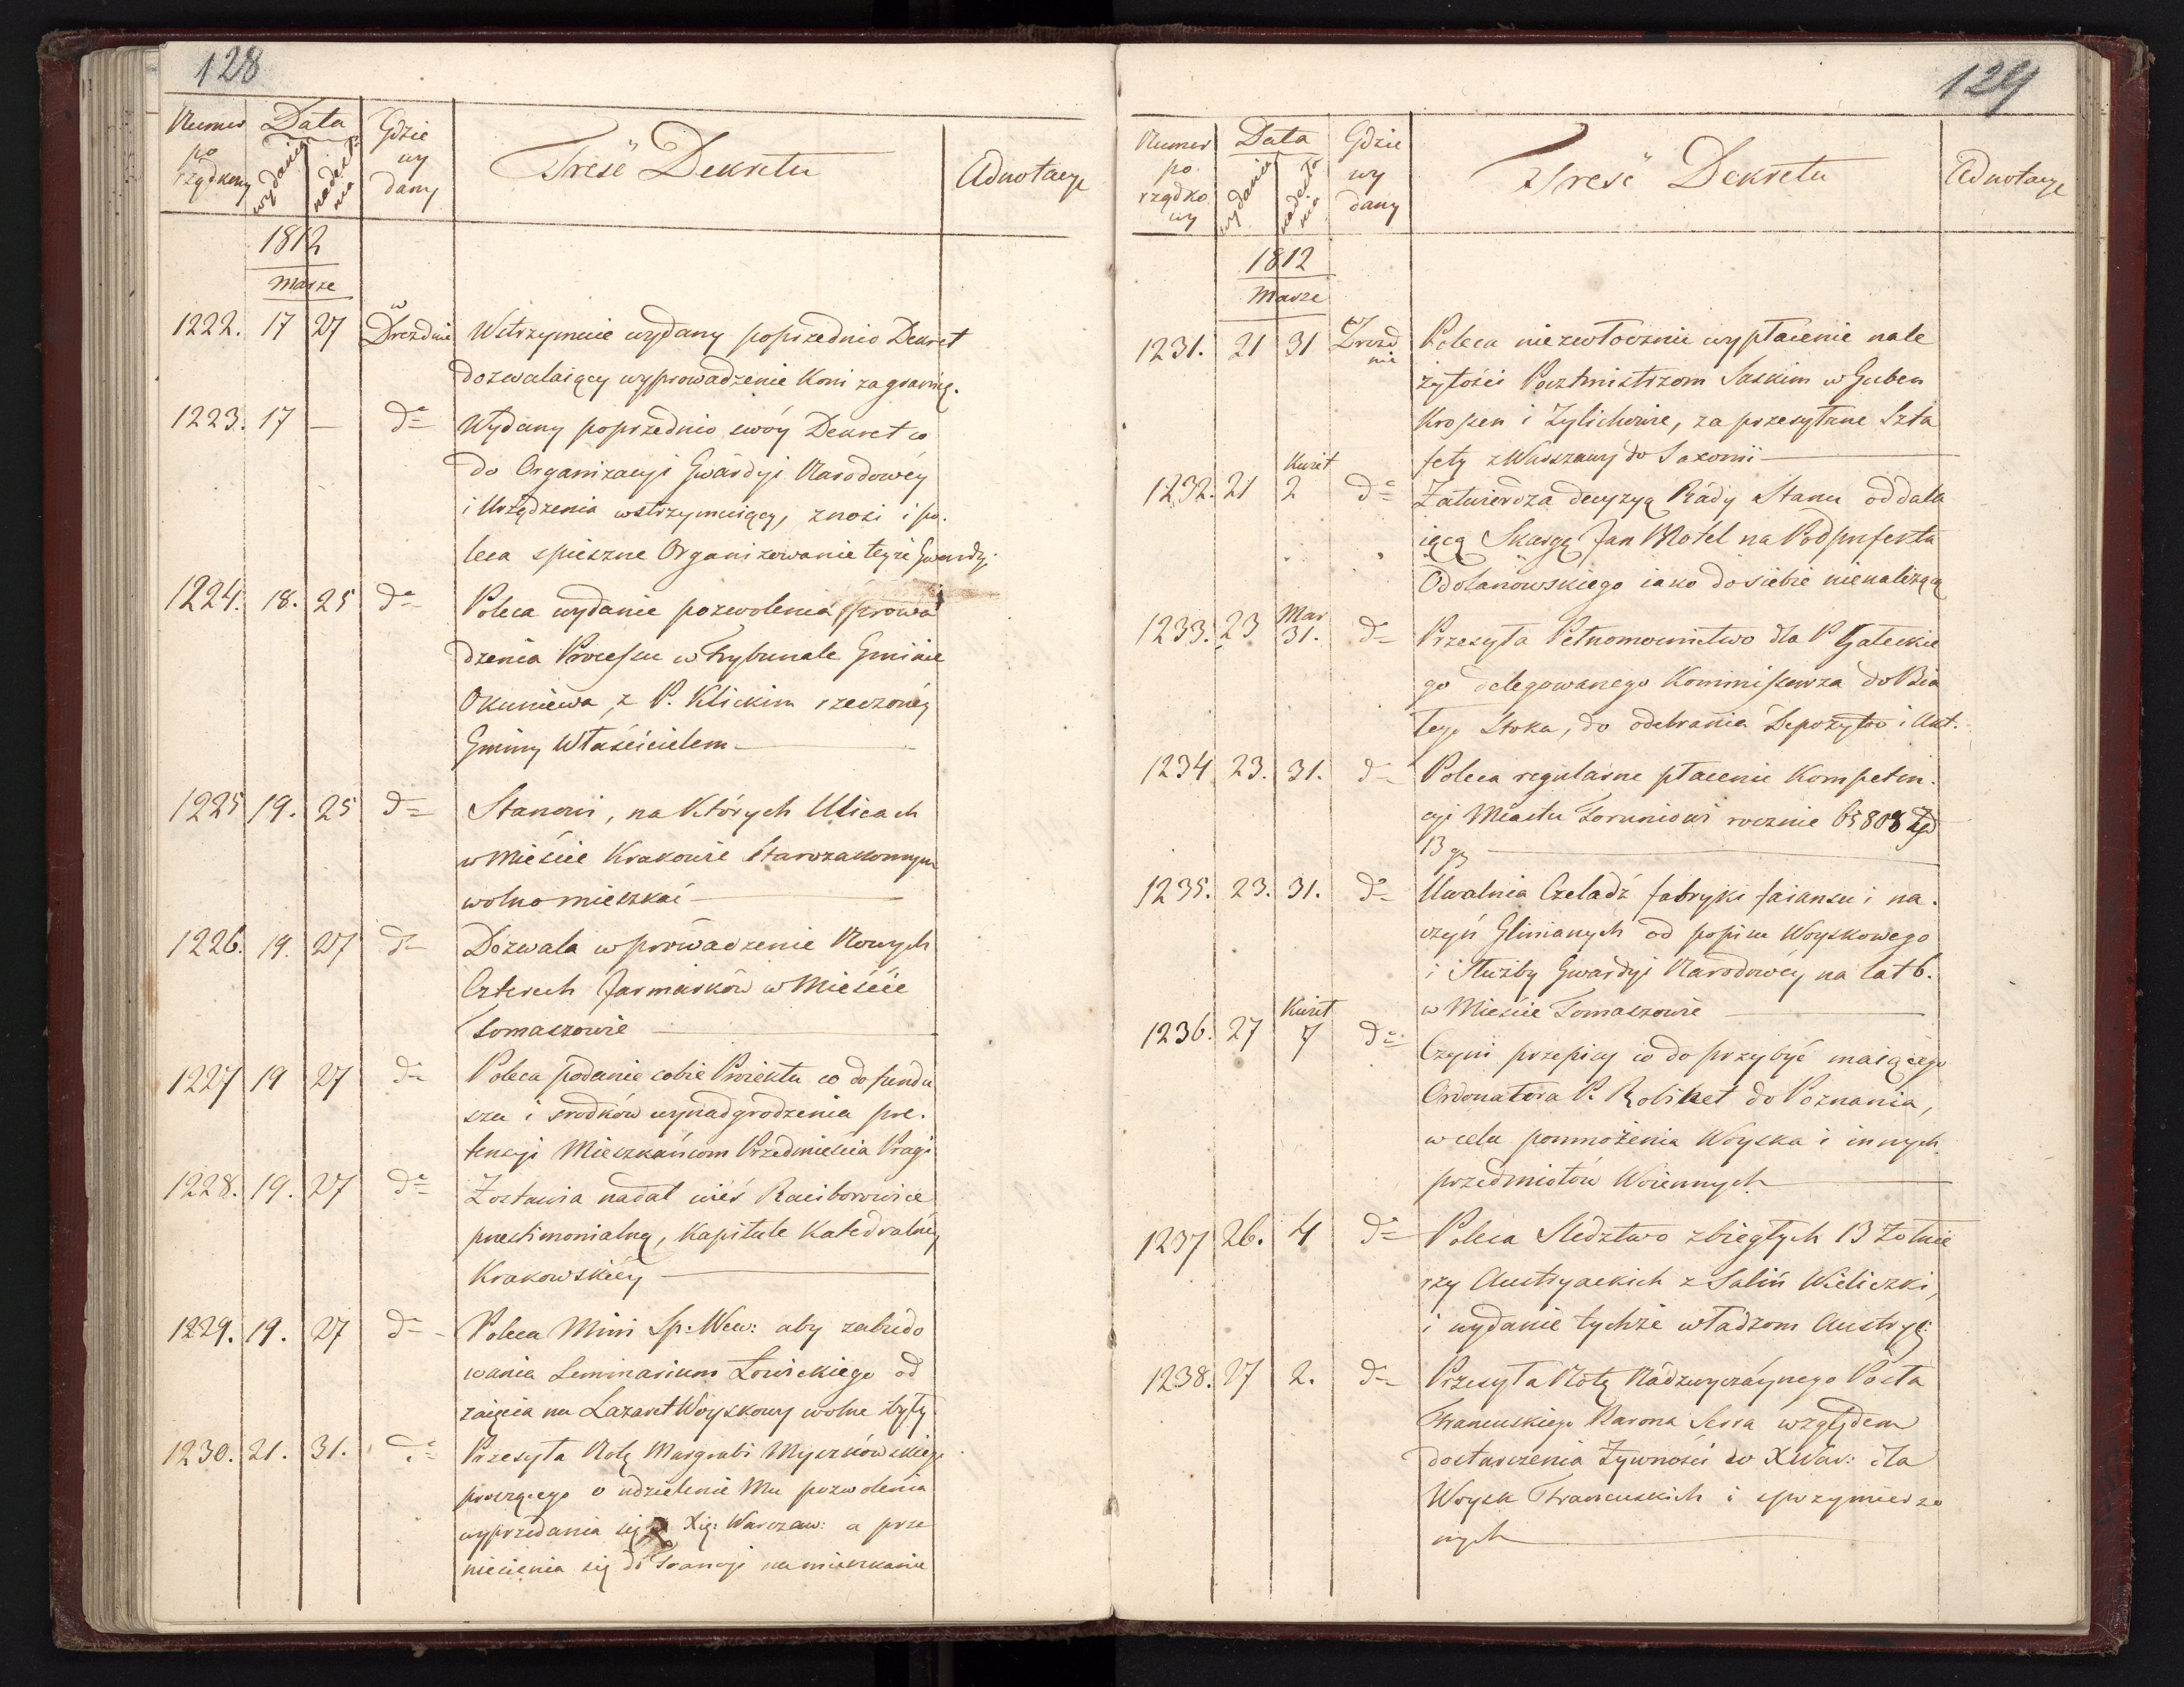 128
Numer Data Gdzie
po wydania nadesła wy Treść Dekretu Adnotacye
rządkowy nia dany
1812
Marze
w
1222. 17 27 Dreźdnie Wstrzymuie wydany poprzednio Dekret
dozwalaiący wyprowadzenie Koni zagranicę.
1223. 17 — do Wydany poprzednio swóy Dekret co
do Organizacyi Gwardyi Narodowéy
i Urządzenia wstrzymuiący, znosi i po-
leca spieszne Organizowanie teyże Gwardyi
1224. 18. 25 do Poleca wydanie pozwolenia prowa
dzenia Processu w Trybunale Gminie
Okuniewa, z P. Klickim rzeczonéy
Gminy Właścicielem —
1225 19. 25 do Stanowi, na Których Ulicach
w Mieście Krakowie Starozakonnym
wolno mieszkać —
1226. 19. 27 do Dozwala wprowadzenie Nowych
Czterech Jarmarków w Mieście
Tomaszowie —
1227 19 27 do Poleca podanie sobie Proiektu co do fundu
szu i srodków wynadgrodzenia pre-
tensyi Mieszkańcom Przedmieścia Pragi
1228. 19. 27 do Zostawia nadal wieś Raciborowice
prestimonialną, Kapitule Katedralnéy
Krakowskiéy —
1229. 19. 27 do Poleca Mini Sp: Wew: aby zabudo
wania Seminarium Łowickiego od
zaięcia na Lazaret Woyskowy wolne były
1230. 21. 31. do Przesyła Notę Margrabi Myszkówskiego
proszącego o udzielenie Mu pozwolenia
wyprzedania się z Xię: Warszaw: a prze
niesienia się do Francyi na mieszkanie
129
Numer Data Gdzie
po wydania nadesła wy Treść Dekretu Adnotacye
rządko nia dany
wy
1812
Marze
w
1231. 21 31 Drezd Poleca niezwłocznie wypłacenie nale
nie żytości Pocztmistrzom Saskim w Guben
Krossen i Zylichowie, za przesyłane Szta
fety z Warszawy do Saxonii —
Kwiet
1232. 21 2 do Zatwierdza decyzyą Rady Stanu oddala
iącą Skargę Jan Motel na Podprefekta
Odolanowskiego iako do siebie nienależącą
Mar
1233. 23 31. do Przesyła Pełnomocnictwo dla P Gałeckie
go delegowanego Kommissarza do Bia
łego Stoka, do odebrania Depozytów i Akt.
1234 23. 31. do Poleca regularne płacenie Kompeten-
cyi Miastu Toruniowi rocznie 65808 Zł
13 gr —
1235. 23. 31. do Uwalnia Czeladź fabryki faiansu i na-
czyń Glinianych od popisu Woyskowego
i Służby Gwardyi Narodowéy na lat 6.
w Mieście Tomaszowie —
Kwiet
1236. 27 7 do Czyni przepisy co do przybyć maiącego
Ordonatora P. Robinet do Poznania,
w celu pomnożenia Woyska i innych
przedmiotów Woiennych —
1237 26. 4 do Poleca Sledztwo zbiegłych 13 Zołnie
rzy Austryackich z Salin Wieliczki,
i wydanie tychże władzom Austry:
1238. 27 2. do Przesyła Notę Nadzwyczaynego Posła
Francuskiego Barona Serra względem
dostarczenia Zywności do XWar: dla
Woysk Francuskich i sprzymierzo
nych —